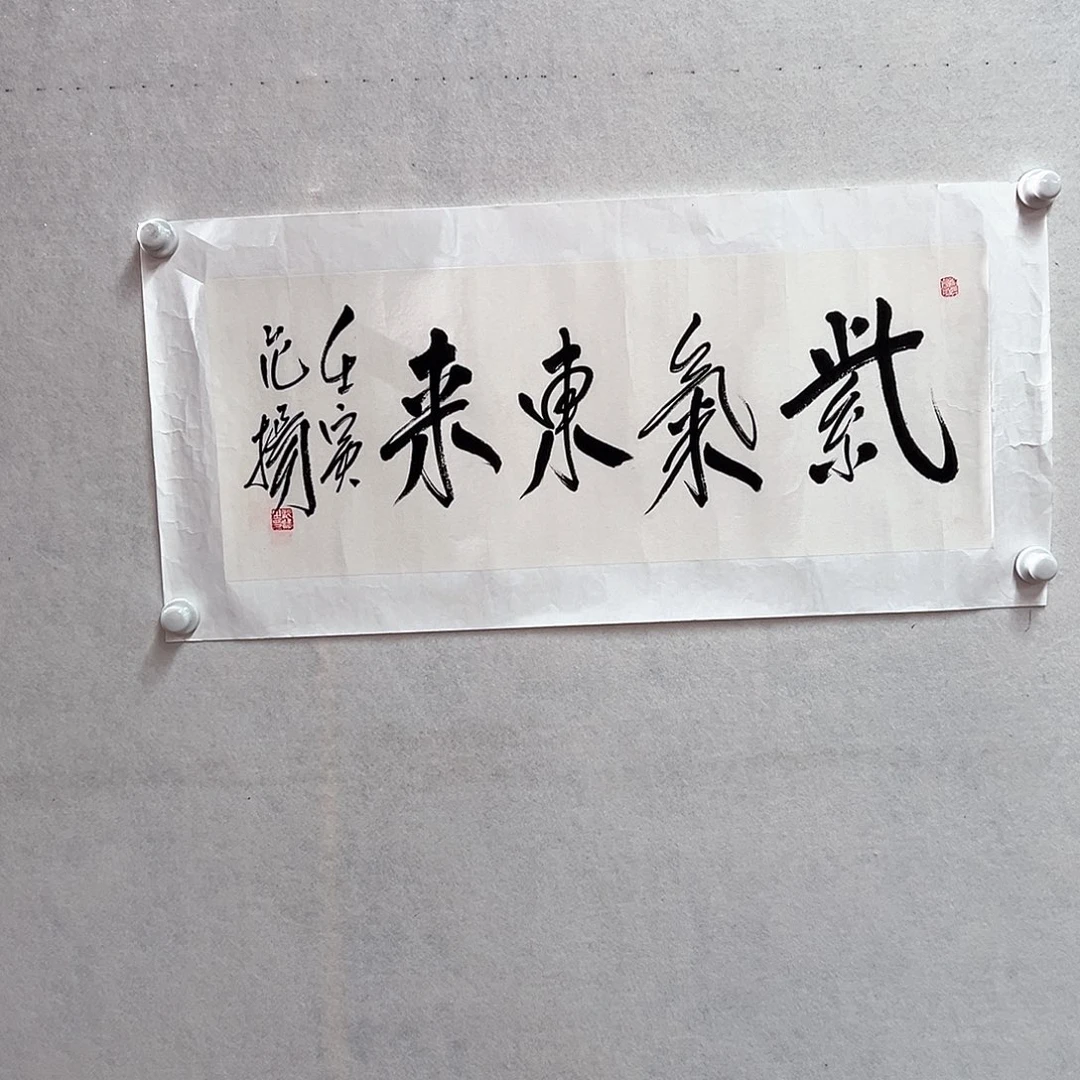 紫氣東来
壬寅
范